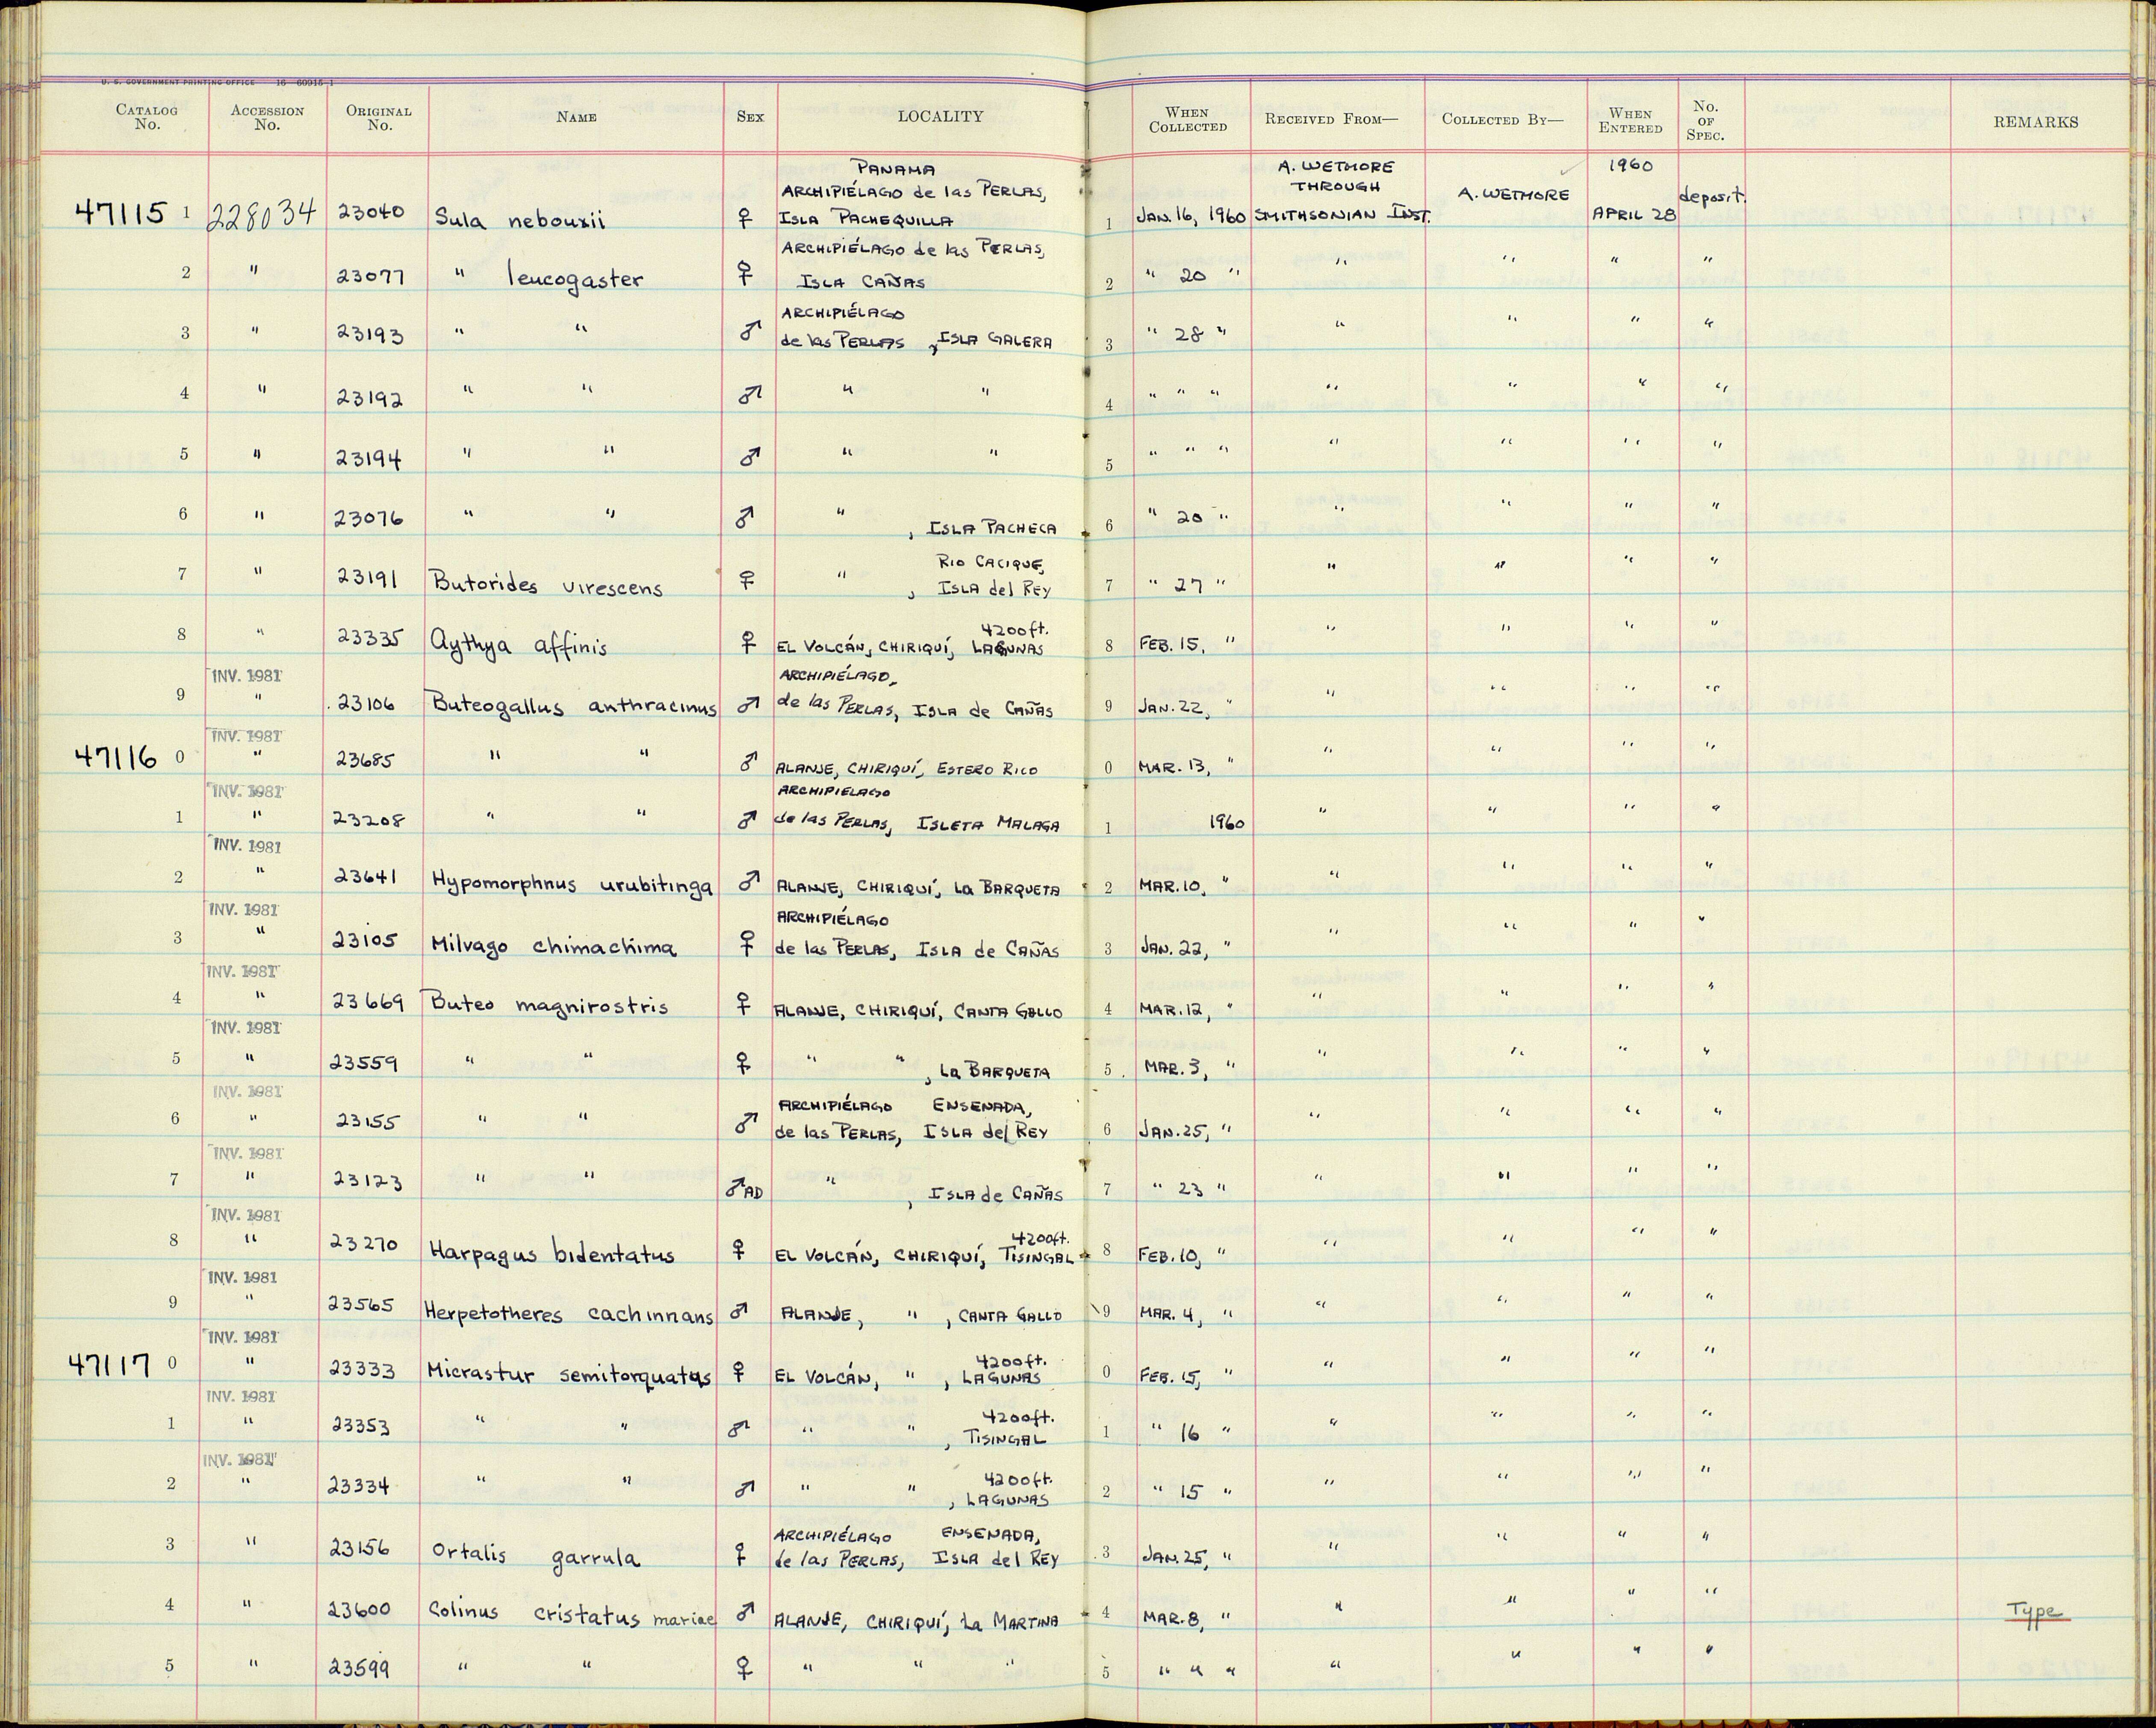 U. S. GOVERNMENT PRINTING OFFICE 16—60915-1
CATALOG No. ACCESSION No. ORIGINAL No. NAME SEX LOCALITY WHEN COLLECTED RECEIVED FROM— COLLECTED BY— WHEN ENTERED No. OF SPEC. REMARKS
PANAMA A. WETMORE 1960
ARCHIPIÉLAGO de las PERLAS, THROUGH A. WETMORE deposit.
47115 1 228034 23040 Sula nebouxii ♀ ISLA PACHEQUILLA 1 JAN. 16, 1960 SMITHSONIAN INST. APRIL 28
ARCHIPIÉLAGO de las PERLAS,
2 " 23077 " leucogaster ♀ ISLA CAÑAS 2 " 20 " " " " "
ARCHIPIÉLAGO
3 " 23193 " " ♂ de las PERLAS, ISLA GALERA 3 " 28 " " " " "
4 " 23192 " " ♂ " " 4 " " " " " " "
5 " 23194 " " ♂ " " 5 " " " " " " "
6 " 23076 " " ♂ " , ISLA PACHECA 6 " 20 " " " " "
RIO CACIQUE,
7 " 23191 Butorides virescens ♀ " , ISLA del REY 7 " 27 " " " " "
4200ft.
8 " 23335 Aythya affinis ♀ EL VOLCÁN, CHIRIQUÍ, LAGUNAS 8 FEB. 15, " " " " "
INV. 1981 ARCHIPIÉLAGO,
9 " 23106 Buteogallus anthracinus ♂ de las PERLAS, ISLA de CAÑAS 9 JAN. 22, " " " " "
INV. 1981
47116 0 " 23685 " " ♂ ALANJE, CHIRIQUÍ, ESTERO RICO 0 MAR. 13, " " " " "
INV. 1981 ARCHIPIELAGO
1 " 23208 " " ♂ de las PERLAS, ISLETA MALAGA 1 1960 " " " "
INV. 1981
2 " 23641 Hypomorphnus urubitinga ♂ ALANJE, CHIRIQUÍ, La BARQUETA 2 MAR. 10, " " " " "
INV. 1981 ARCHIPIÉLAGO
3 " 23105 Milvago chimachima ♀ de las PERLAS, ISLA de CAÑAS 3 JAN. 22, " " " " "
INV. 1981
4 " 23669 Buteo magnirostris ♀ ALANJE, CHIRIQUÍ, CANTA GALLO 4 MAR. 12, " " " " "
INV. 1981
5 " 23559 " " ♀ " " , La BARQUETA 5 MAR. 3, " " " " "
INV. 1981 ARCHIPIÉLAGO ENSENADA,
6 " 23155 " " ♂ de las PERLAS, ISLA del REY 6 JAN. 25, " " " " "
INV. 1981
7 " 23123 " " ♂ AD " , ISLA de CAÑAS 7 " 23 " " " " "
INV. 1981 4200ft.
8 " 23270 Harpagus bidentatus ♀ EL VOLCÁN, CHIRIQUÍ, TISINGAL 8 FEB. 10, " " " " "
INV. 1981
9 " 23565 Herpetotheres cachinnans ♂ ALANJE, " , CANTA GALLO 9 MAR. 4, " " " " "
INV. 1981 4200ft.
47117 0 " 23333 Micrastur semitorquatus ♀ EL VOLCÁN, " , LAGUNAS 0 FEB. 15, " " " " "
INV. 1981 4200ft.
1 " 23353 " " ♂ " " , TISINGAL 1 " 16 " " " " "
INV. 1981 4200ft.
2 " 23334 " " ♂ " " , LAGUNAS 2 " 15 " " " " "
ARCHIPIÉLAGO ENSENADA,
3 " 23156 Ortalis garrula ♀ de las PERLAS, ISLA del REY 3 JAN. 25, " " " " "
4 " 23600 Colinus cristatus mariae ♂ ALANJE, CHIRIQUÍ, La MARTINA 4 MAR. 8, " " " " " Type
5 " 23599 " " ♀ " " " 5 " " " " " " "